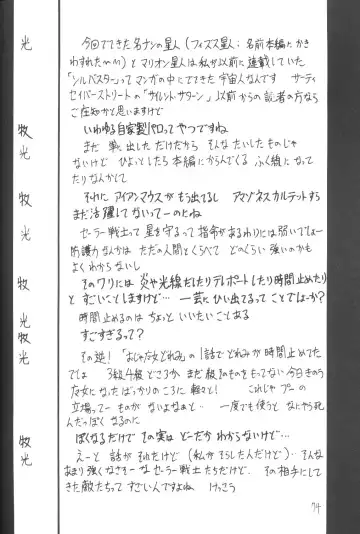 光　今回でてきた名ナシの星人(フィズス星人:名前本編にかき
わすれたmm)とマリオン星人は私が以前に連載していた
「シルバスター」ってマンガの中にでてきた宇宙人なんです サーティ
セイバーストリートの「サイレント・サターン」以前からの読者の方なら
ご存知かと思いますけど
牧　いわゆる自家製パロってやつですね
光　まだ単に出しただけだから そんなたいしたものじゃ
ないけど ひょっとしたら本編にからんでくるふく線になって
たりなんかして
牧　それに アイアンマウスがもう出てるし アマゾネスカルテットすら
まだ活躍してないってーのとね
光　セーラー戦士って星を守るって指命があるわりには弱いでしょー
防護力なんかは ただの人間とくらべて どのくらい強いのかも
よくわからないし
牧　そのワリには 炎や光線だしたりテレポートしたり時間止めたり
と すごいことしますけど… 一芸にひい出てるって ことでしょーか?
光　時間止めるのは ちょっと いいたいことある
牧　すごすぎるって?
光　その逆! 「おジャ魔女どれみ」の1話でどれみが時間止めてた
では 3級4級どころか まだ級そのものをもってない今日きのう
女になったばっかりのころに軽々と! これじゃ プーの
立場ってー ものがないよなぁと… 一度でも使うと なにやら死
んだっぽくなるのに
牧　ぽくなるだけで その実は どーだか わからないけど…
光　えーと 話がそれたけど(私がそらしたんだけど)…そんな
あまり強くなさそーな セーラー戦士たちだけど その相手にして
きた敵たちって すごい人ですよね けっこう
74